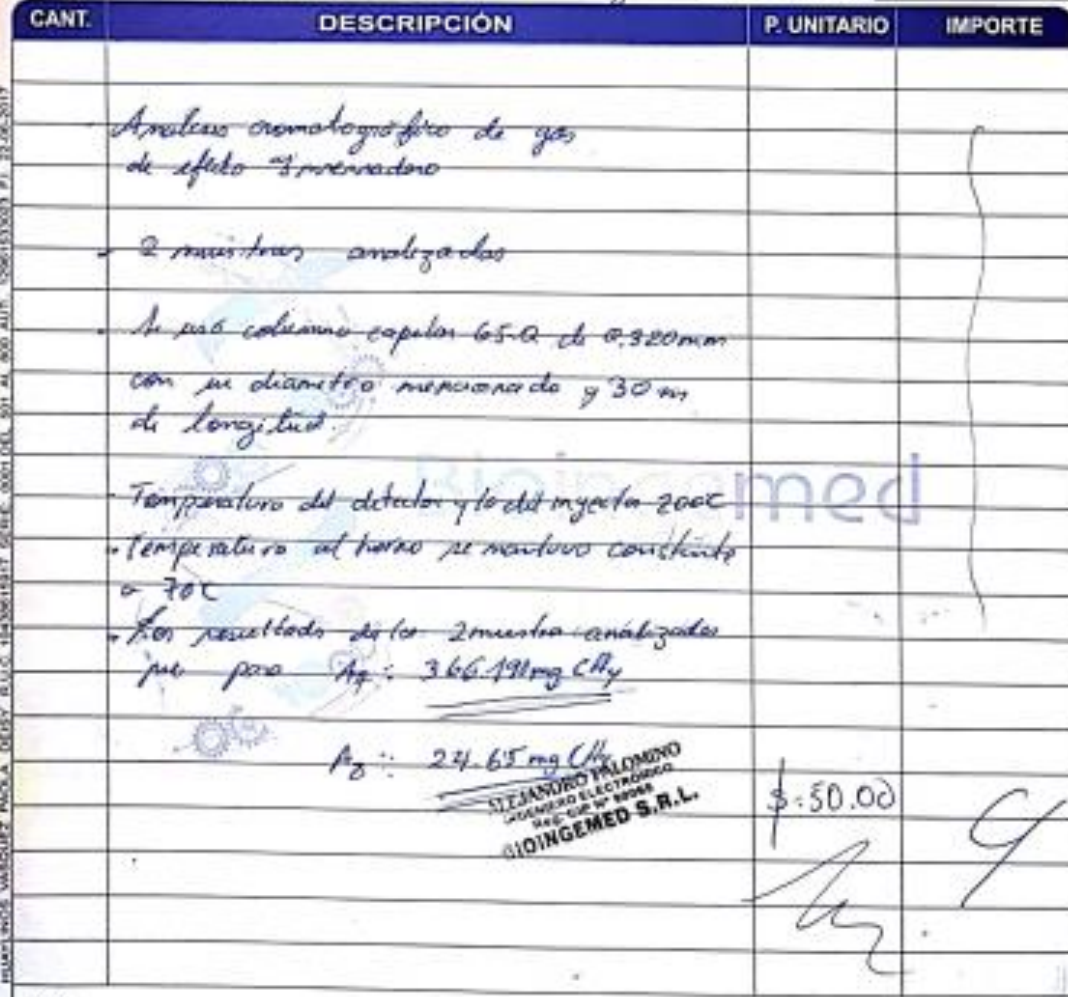 CANT. DESCRIPCIÓN P. UNITARIO IMPORTE
Analisis cromatográfico de gas
de efecto Invernadero
- 2 muestras analizadas
- Se usó columna capilar GS-Q de 0.320mm
con un diametro mencionado y 30 m
de longitud.
- Temperatura del detector y la del inyector 200C
- Temperatura al horno se mantuvo constante
a 70C
- Los resultado de la 2 muestra analizadas
fue para 366.191mg CH4
24.65 mg CH4
$.50.00
Bioingemed
ALEJANDRO PALOMINO
INGENIERO ELECTRÓNICO
Reg. CIP N°
BIOINGEMED S.R.L.
HUAYLINOS VASQUEZ PAOLA DEISY R.U.C. SERIE 0001 DEL 501 AL 600 AUT. F.I. 22-06-2017